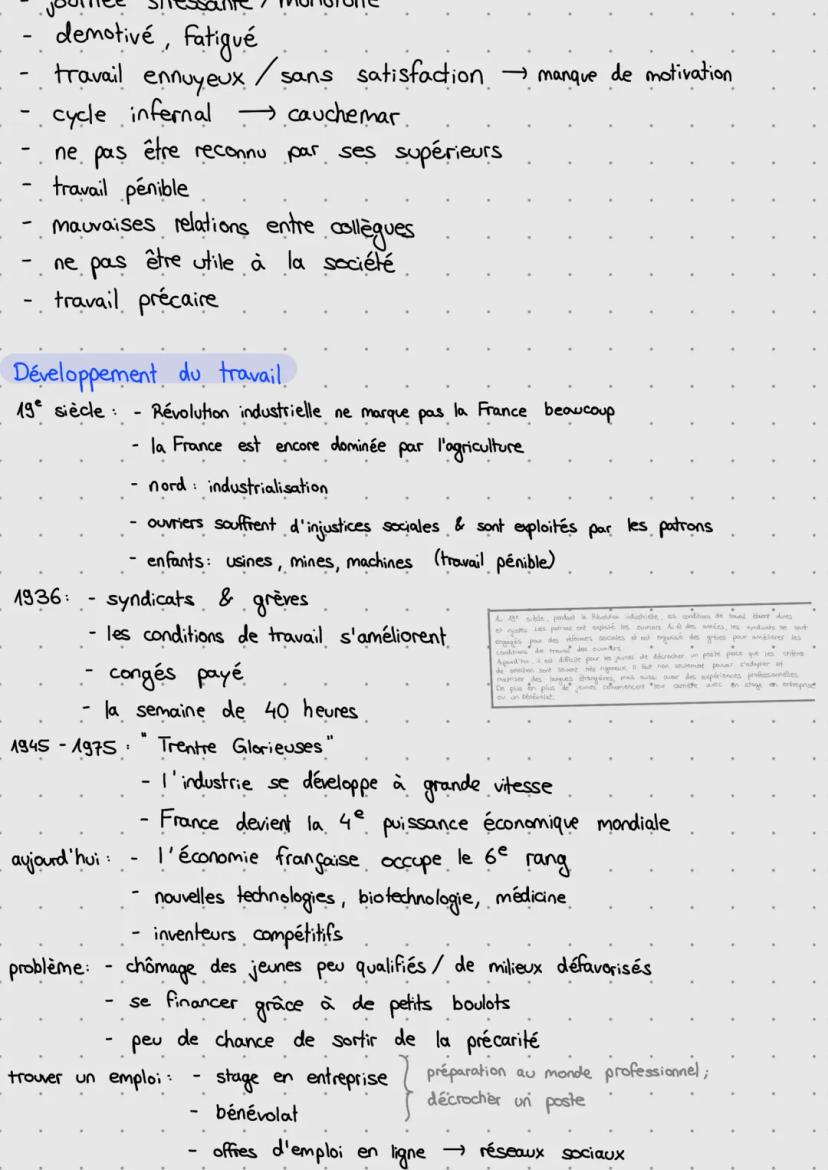 - journée stressante / monotone
- demotivé, fatigué
- travail ennuyeux / sans satisfaction → manque de motivation
- cycle infernal → cauchemar
- ne pas être reconnu par ses supérieurs
- travail pénible
- mauvaises relations entre collègues
- ne pas être utile à la société
- travail précaire
Développement du travail
19e siècle : - Révolution industrielle ne marque pas la France beaucoup
- la France est encore dominée par l'agriculture
- nord : industrialisation
- ouvriers souffrent d'injustices sociales & sont exploités par les patrons
- enfants: usines, mines, machines (travail pénible)
1936: - syndicats & grèves
- les conditions de travail s'améliorent
- congés payé
- la semaine de 40 heures
Au 19e siècle, pendant la Révolution industrielle, les conditions de travail étaient dures
et injustes. Les patrons ont exploité les ouvriers. Au fil des années, les syndicats se sont
engagés pour des réformes sociales et ont organisé des grèves pour améliorer les
conditions de travail des ouvriers.
Aujourd'hui, il est difficile pour les jeunes de décrocher un poste parce que les critères
de sélection sont souvent très rigoureux. Il faut non seulement pouvoir s'adapter et
maîtriser des langues étrangères, mais aussi avoir des expériences professionnelles.
De plus en plus de jeunes commencent leur carrière avec un stage en entreprise
ou un bénévolat.
1945 - 1975 : "Trentre Glorieuses"
- l'industrie se développe à grande vitesse
- France devient la 4e puissance économique mondiale
aujourd'hui : - l'économie française occupe le 6e rang
- nouvelles technologies, biotechnologie, médicine
- inventeurs compétitifs
problème: - chômage des jeunes peu qualifiés / de milieux défavorisés
- se financer grâce à de petits boulots
- peu de chance de sortir de la précarité
trouver un emploi : - stage en entreprise } préparation au monde professionnel;
- bénévolat décrocher un poste
- offres d'emploi en ligne → réseaux sociaux